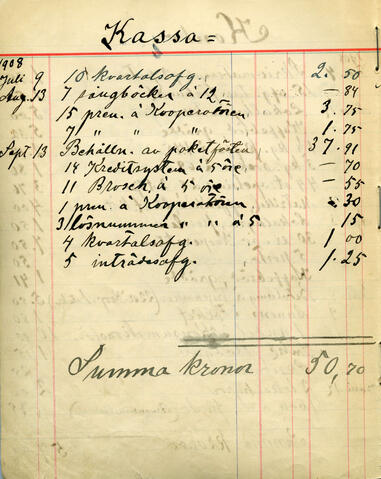 Kassa =
1908
Juli 9 10 kvartalsafg. 2. 50
Aug. 13 7 sångböcker à 12 — 84
15 pren. à Kooperatören 3. 75
7 " " " 1. 75
Sept 13 Behålln. av paketfesten 37. 91
14 Kreditsystem à 5 öre — 70
11 Brosch. à 5 öre — 55
1 pren. à Kooperatören - 30
3 lösnummer " " à 5 15
4 kvartalsafg. 1 00
5 inträdesafg. 1. 25
Summa kronor 50,70